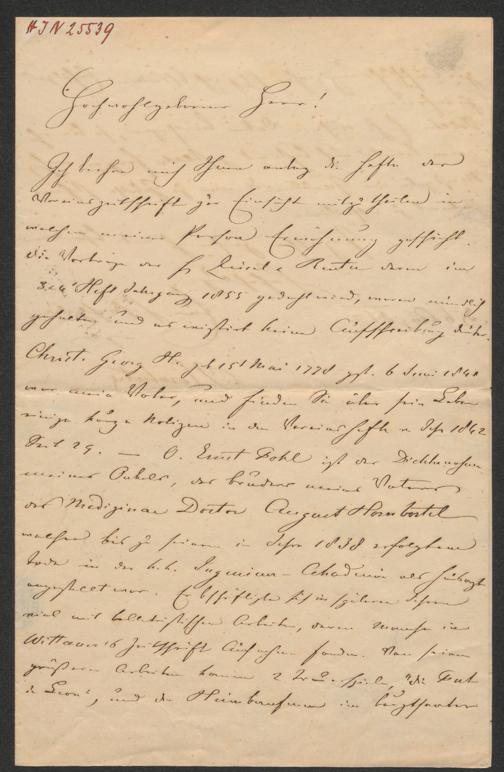 H.I.N 25539
Hochwohlgeborner Herr!
Ich beehre mich Ihnen anbey die Hefte der
Vereinszeitschrift zur Einsicht mitzutheilen in
welchen meiner Person Erwähnung geschieht.
Die Vorträge der H. & Reuter deren im
Heft Jahrgang 1855 gedacht wird, waren mündlich
gehalten und es existirt keine Aufschreibung
Christ. Georg H. geb 15t Mai 1778 gest. 6 Juni 1841
war mein Vater, und finden Sie über sein Leben
einige kurze Notizen in den Vereinsheften Jahr 1842
Seit 29. — O. Ernst Fohl ist der Dichternahme
meines Onkels, des Bruders meines Vaters
des Medizinae Doctor August Hornbostel
welcher bis zu seinem im Jahre 1838 erfolgten
Tode in der k.k. Ingenieur-Akademie als
angestellt war. Er beschäftigte sich in spätern Jahren
viel mit belletristischen Arbeiten, deren manche in
Witthauer's Zeitschrift Aufnahme fanden. Von seinen
größeren Arbeiten kamen 2 Lustspiele, "die
", und die im Burgtheater